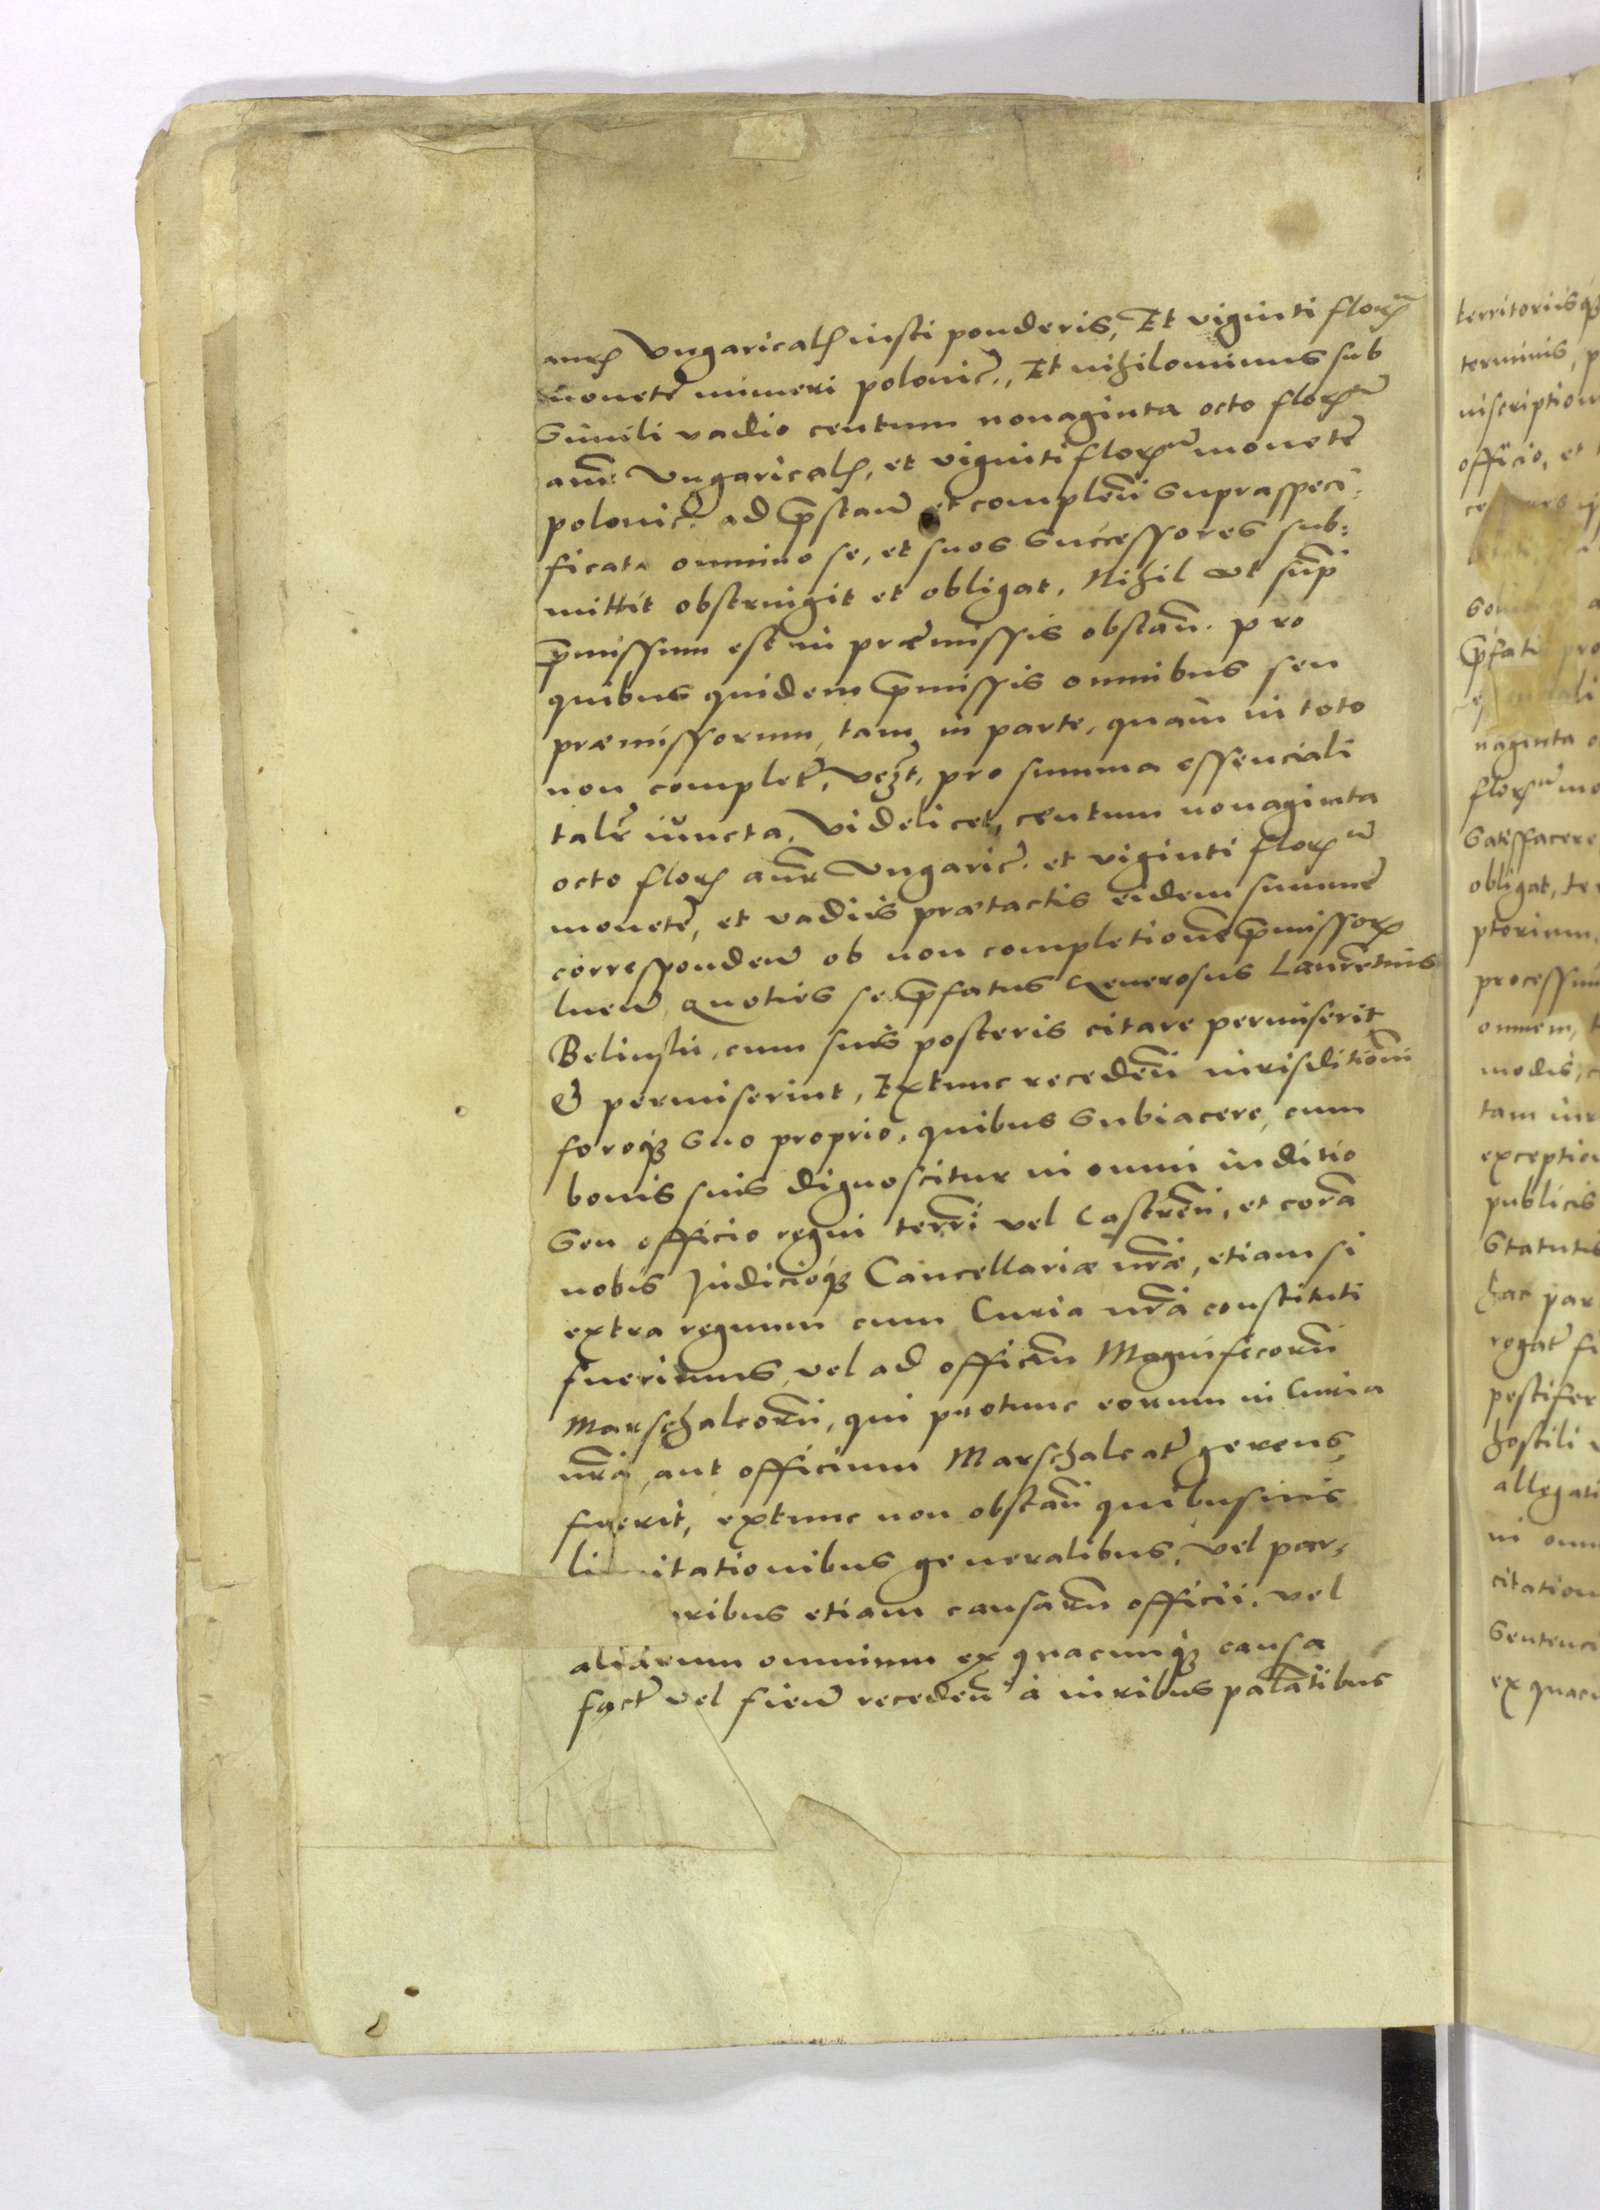 aurꝝ Vngaricalꝝ iusti ponderis, Et viginti florꝝ
monete numeri polonic., Et nihilominus sub
Simili vadio centum nonaginta octo florꝝ
aur Vngaricalꝝ, et viginti florꝝ monete
polonic. ad p̄stan̄ et complen̄ supraspeci:
ficata omnino se, et suos Successores sub:
mittit obstringit et obligat, Nihil vt sup̄
p̄missum est in præmissis obstan̄. pro
quibus quidem p̄missis omnibus seu
præmissorum, tam in parte, quàm in toto
non complet̄, pro summa essenciali
taliter iuncta, Videlicet, centum nonaginta
octo florꝝ aur̄ Vngaric. et viginti florꝝ
monete, et vadiis prætactis eidem summe
corresponden̄ ob non completionē p̄missorꝝ
luen̄ Quoties se p̄fatus Generosus Laurētius
Belinski, cum suis posteris citare permiserit
& permiserint, Extunc receden̄ iurisditioni
foroq; Suo proprio, quibus Subiacere, cum
bonis suis dignoscitur in omni iuditio
Seu officio regni terrī vel Castren̄, et corā
nobis Judicioq; Cancellariæ nr̄æ, etiam si
extra regnum cum Curia nr̄a constituti
fuerimus, vel ad officiū Magnificorū
Marschalcorū, qui protunc eorum in Curia
nr̄a, aut officium Marschalcat̄ gerens,
fuerit, extunc non obstan̄ quibusuis
limitationibus generalibus, vel par,
ribus etiam causarū officii, vel
aliarum omnium ex quacunq; causa
fact̄ vel fien̄ receden̄ à iuribus palātibus
territoriisq;
terminis, p
inscription
officio, et
Sol
p̄fati pro
naginta o
florꝝ mo
Satisfacere
obligat, ter
ptorium,
processum
omnem,
modis, c
tam iur
exception
publicis
Statutis
hac par
rogat̄ fi
pestifer
hostili v
allegati
in omn
citation
Sentenci
ex quacu